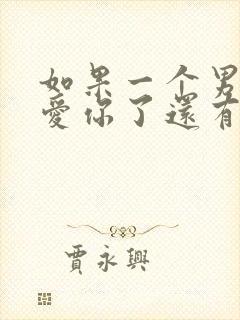 如果一个男
愛你了還有
賈永興